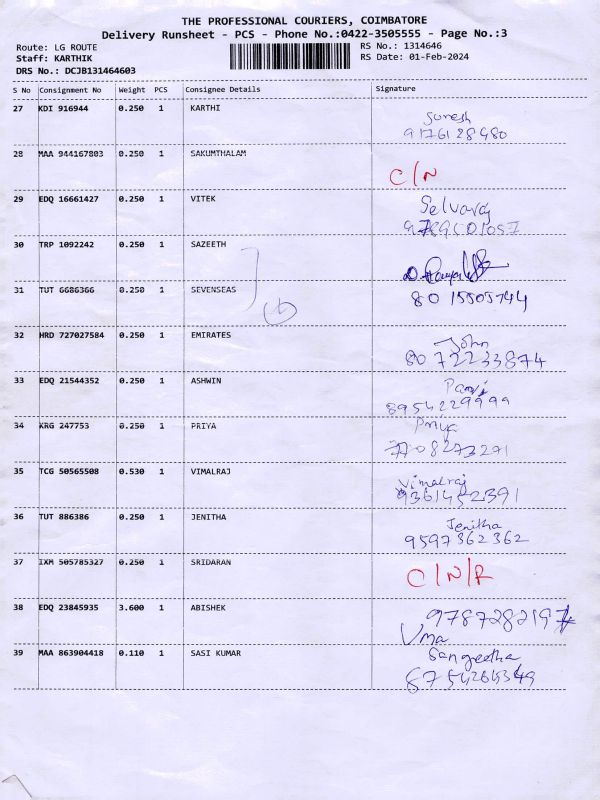 THE PROFESSIONAL COURIERS, COIMBATORE
Delivery Runsheet - PCS - Phone No.:0422-3505555 - Page No.:3
Route: LG ROUTE RS No.: 1314646
Staff: KARTHIK RS Date: 01-Feb-2024
DRS No.: DCJB131464603
S No Consignment No Weight PCS Consignee Details Signature
27 KDI 916944 0.250 1 KARTHI Suresh
9176128480
28 MAA 944167803 0.250 1 SAKUMTHALAM C/N
29 EDQ 16661427 0.250 1 VITEK Selvaraj
30 TRP 1092242 0.250 1 SAZEETH
31 TUT 6686366 0.250 1 SEVENSEAS 8015505744
32 HRD 727027584 0.250 1 EMIRATES John
8072233874
33 EDQ 21544352 0.250 1 ASHWIN
8954229999
34 KRG 247753 0.250 1 PRIYA Priya
7708273291
35 TCG 50565508 0.530 1 VIMALRAJ Vimalraj
9361452391
36 TUT 886386 0.250 1 JENITHA Jenitha
9597362362
37 IXM 505785327 0.250 1 SRIDARAN C/N/R
38 EDQ 23845935 3.600 1 ABISHEK 9787282197
Uma
39 MAA 863904418 0.110 1 SASI KUMAR Sangeetha